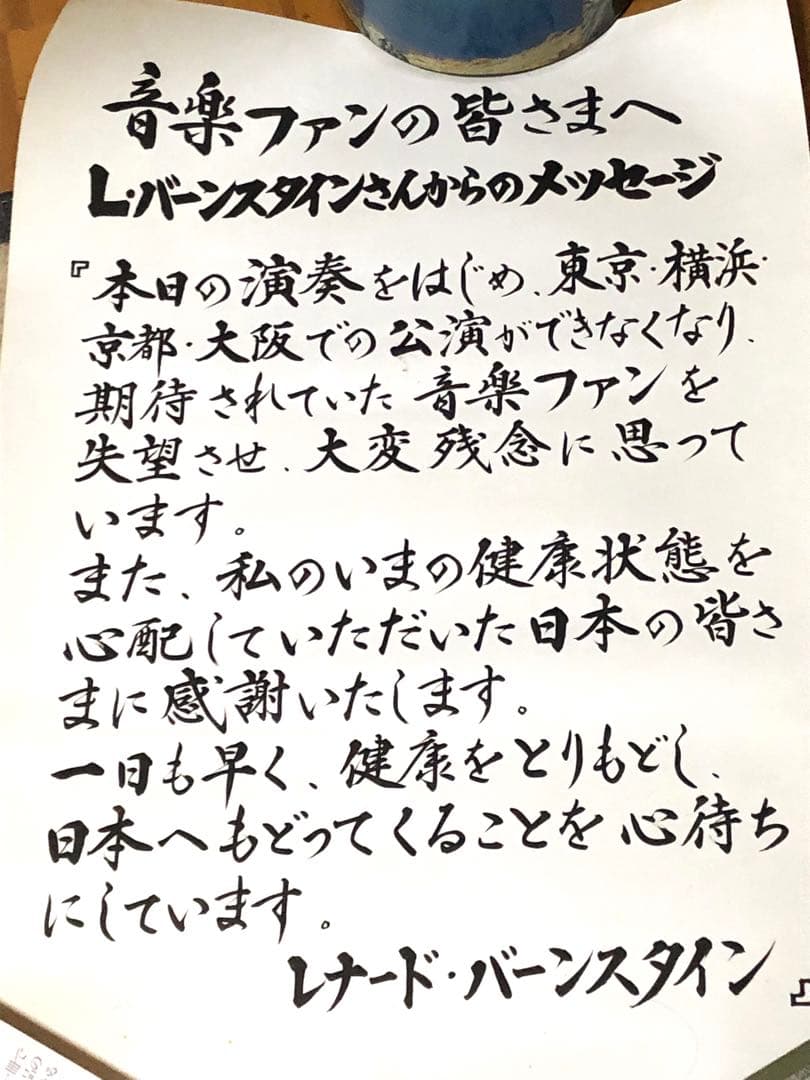 音楽ファンの皆さまへ
L・バーンスタインさんからのメッセージ
『本日の演奏をはじめ、東京・横浜・
京都・大阪での公演ができなくなり、
期待されていた音楽ファンを
失望させ、大変残念に思って
います。
また、私のいまの健康状態を
心配していただいた日本の皆さ
まに感謝いたします。
一日も早く、健康をとりもどし、
日本へもどってくることを心待ち
にしています。
レナード・バーンスタイン』